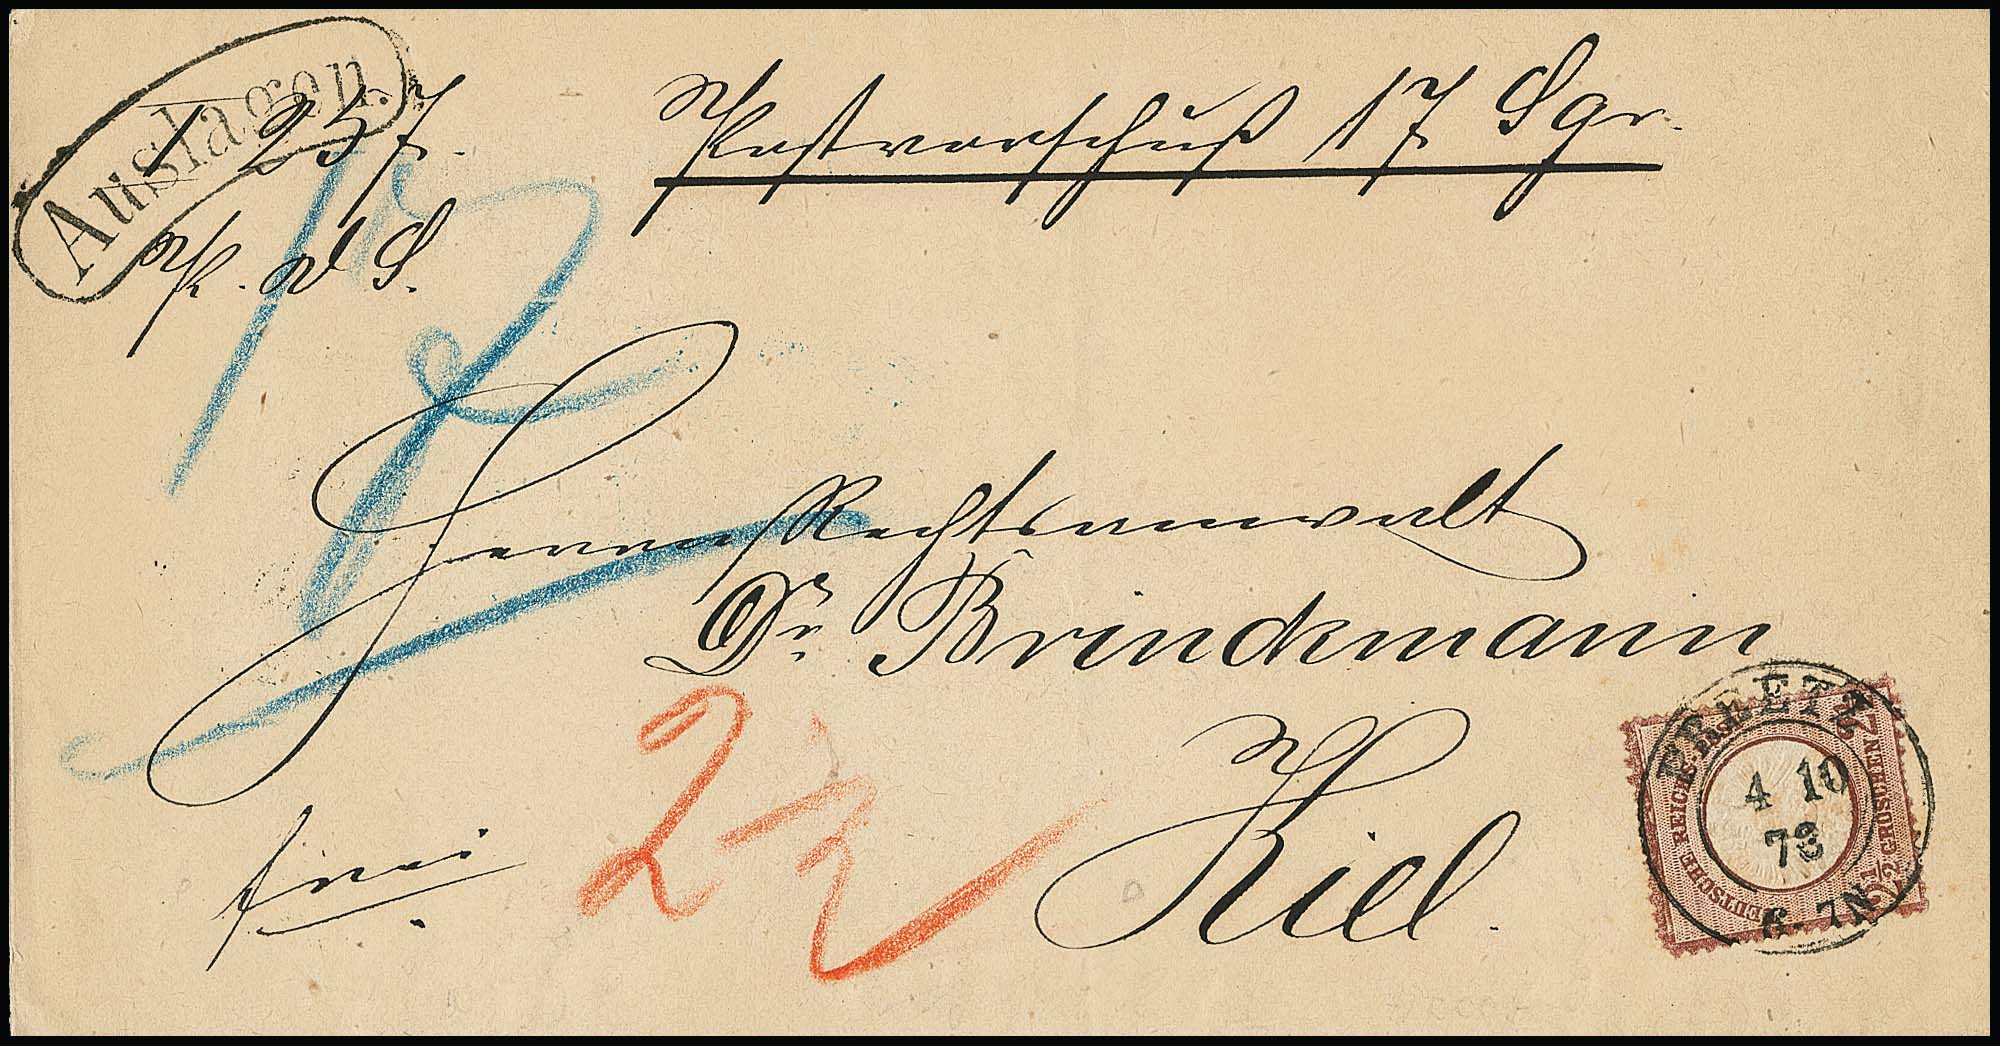 Auslagen.
1 257.
Pr. v. S.
Postvorschuß 17 Sgr.
Herrn Rechtsanwalt
Dr. Brinckmann
Kiel.
frei
2 1/2
PREETZ
4 10
73
6-7N
DEUTSCHE REICHS-POST
2 1/2 GROSCHEN